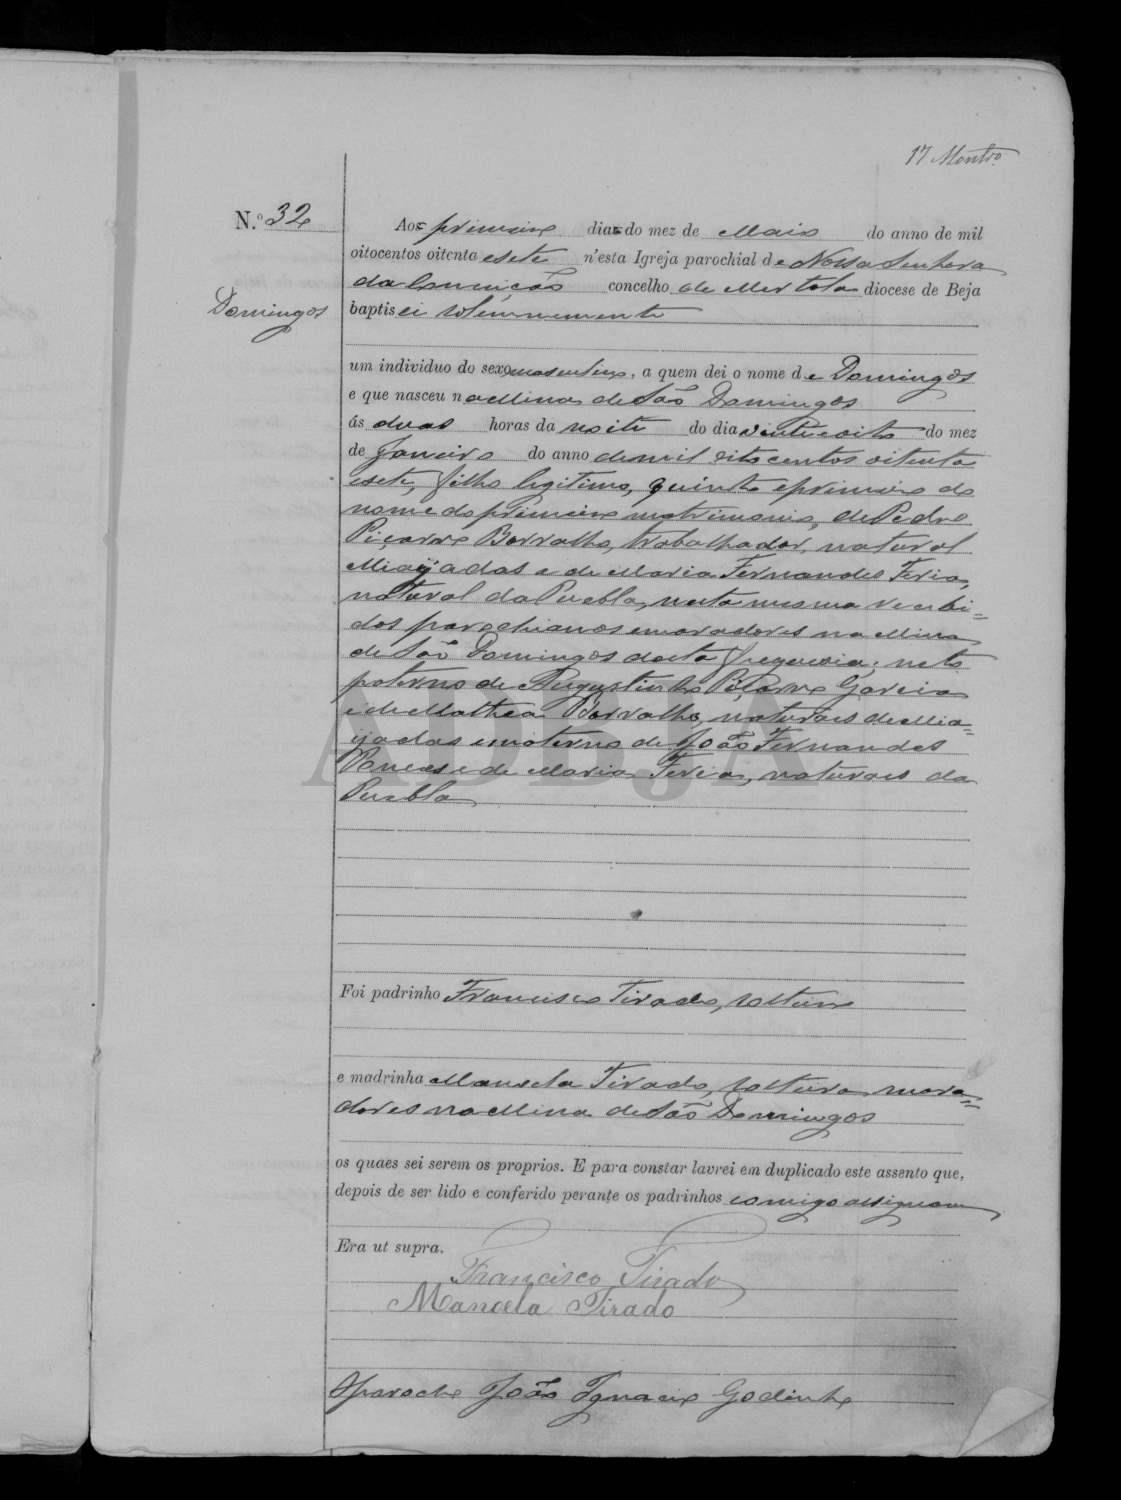 17 Montrº
N.º 32
Domingos
Aos primeiro dias do mez de Maio do anno de mil
oitocentos oitenta e sete n'esta Igreja parochial de Nossa Senhora
da Conceição concelho de Mertola diocese de Beja
baptisei solemnemente
um individuo do sexo masculino, a quem dei o nome de Domingos
e que nasceu na Mina de São Domingos
ás duas horas da noite do dia vinte e oito do mez
de Janeiro do anno de mil oito centos oitenta
e sete, filho legitimo, quinto e primeiro do
nome do primeiro matrimonio, de Pedro
Piçarro Borralho, trabalhador, natural
Miajadas e de Maria Fernandes Feria,
natural da Puebla, nesta mesma recebi=
dos parochianos e moradores na Mina
de São Domingos desta freguezia; neto
paterno de Augustinho Piçarro Garcia
e de Mathea Borralho, naturaes de Mia=
jadas e materno de João Fernandes
e de Maria Feria, naturaes da
Puebla
ADBJA
Foi padrinho Francisco Tirado, solteiro
e madrinha Manoela Tirado, solteira mora=
dores na Mina de São Domingos
os quaes sei serem os proprios. E para constar lavrei em duplicado este assento que,
depois de ser lido e conferido perante os padrinhos comigo assignam
Era ut supra.
Francisco Tirado
Manoela Tirado
O parocho João Ignacio Godinho